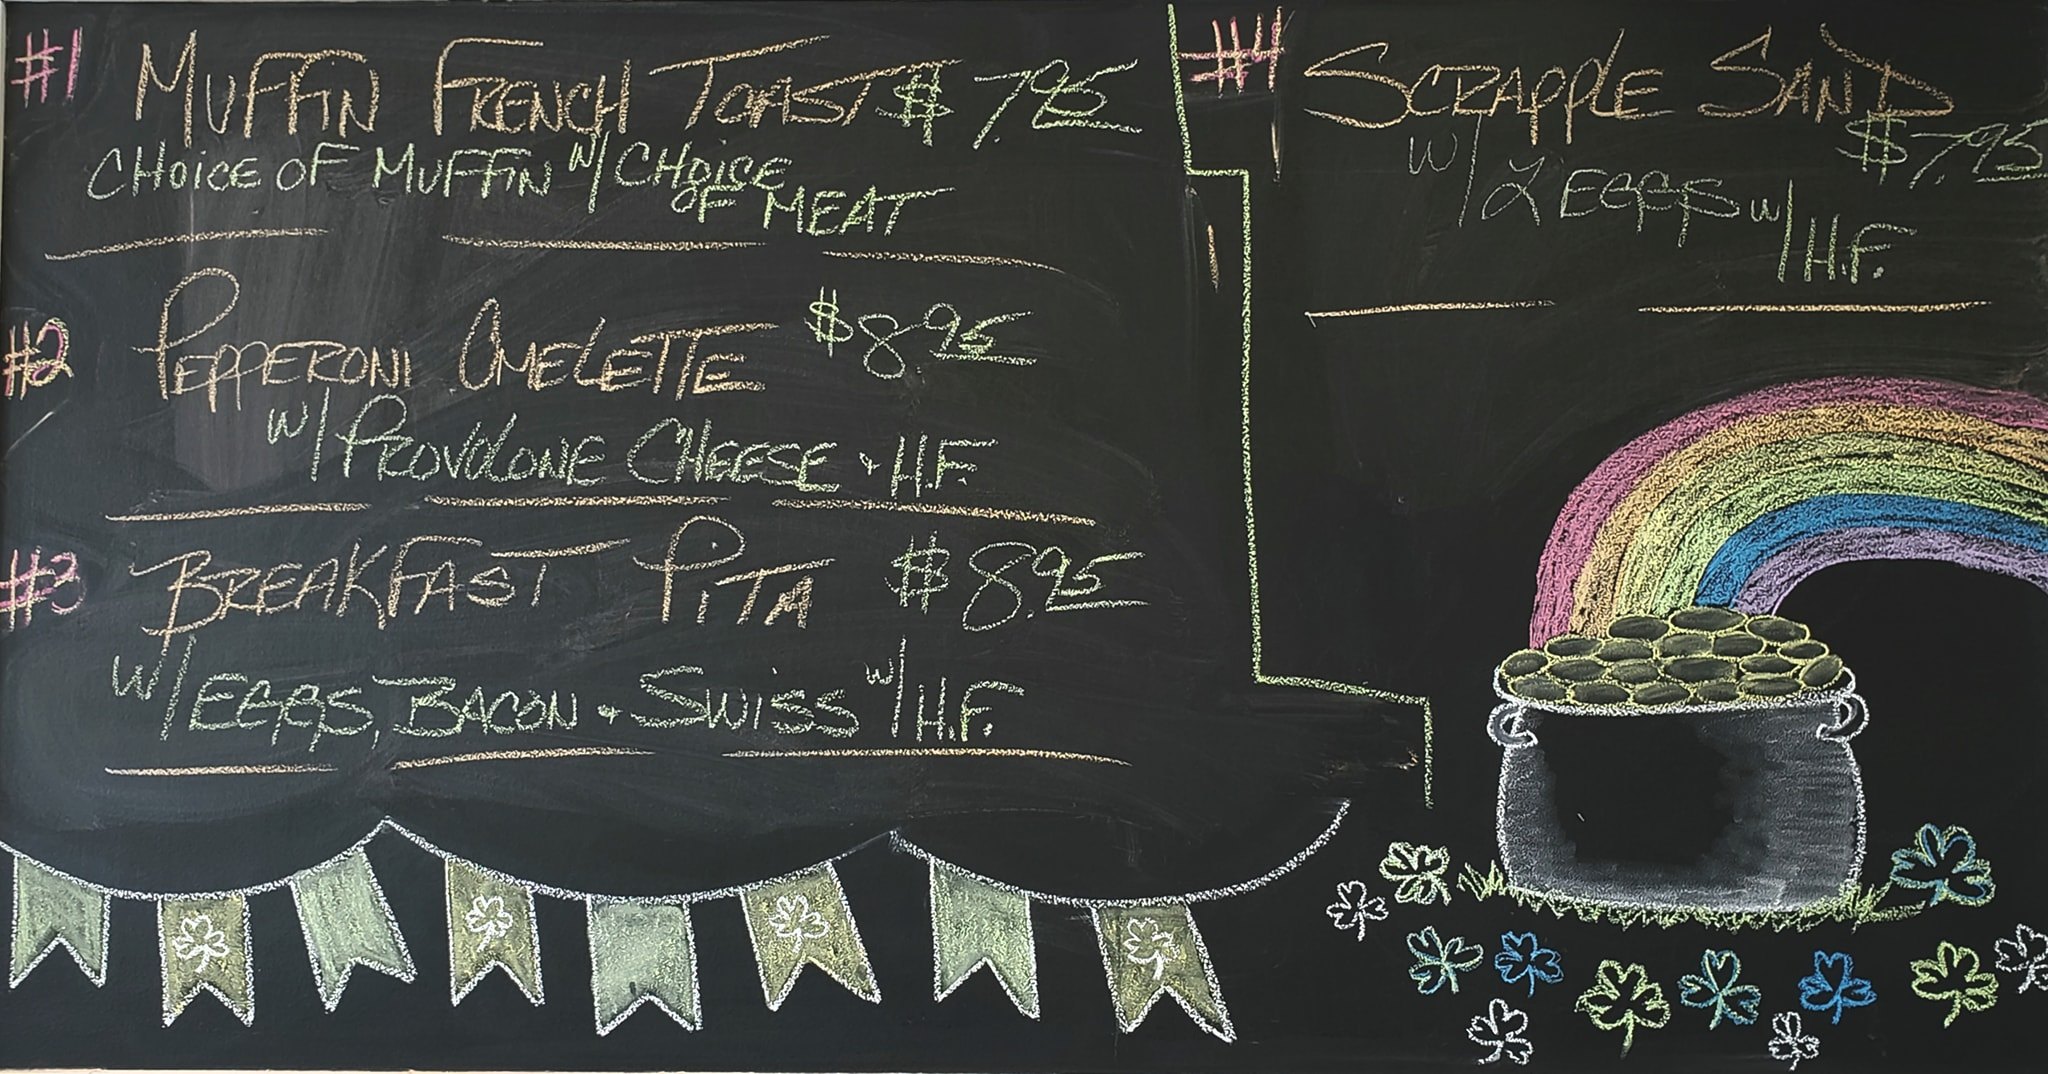 #1 MUFFIN FRENCH TOAST $7.95
CHOICE OF MUFFIN W/ CHOICE
OF MEAT
#2 PEPPERONI OMELETTE $8.95
W/ PROVOLONE CHEESE + H.F.
#3 BREAKFAST PITA $8.95
W/ EGGS, BACON + SWISS W/ H.F.
#4 SCRAPPLE SAND
$7.95
W/ 2 EGGS W/ H.F.